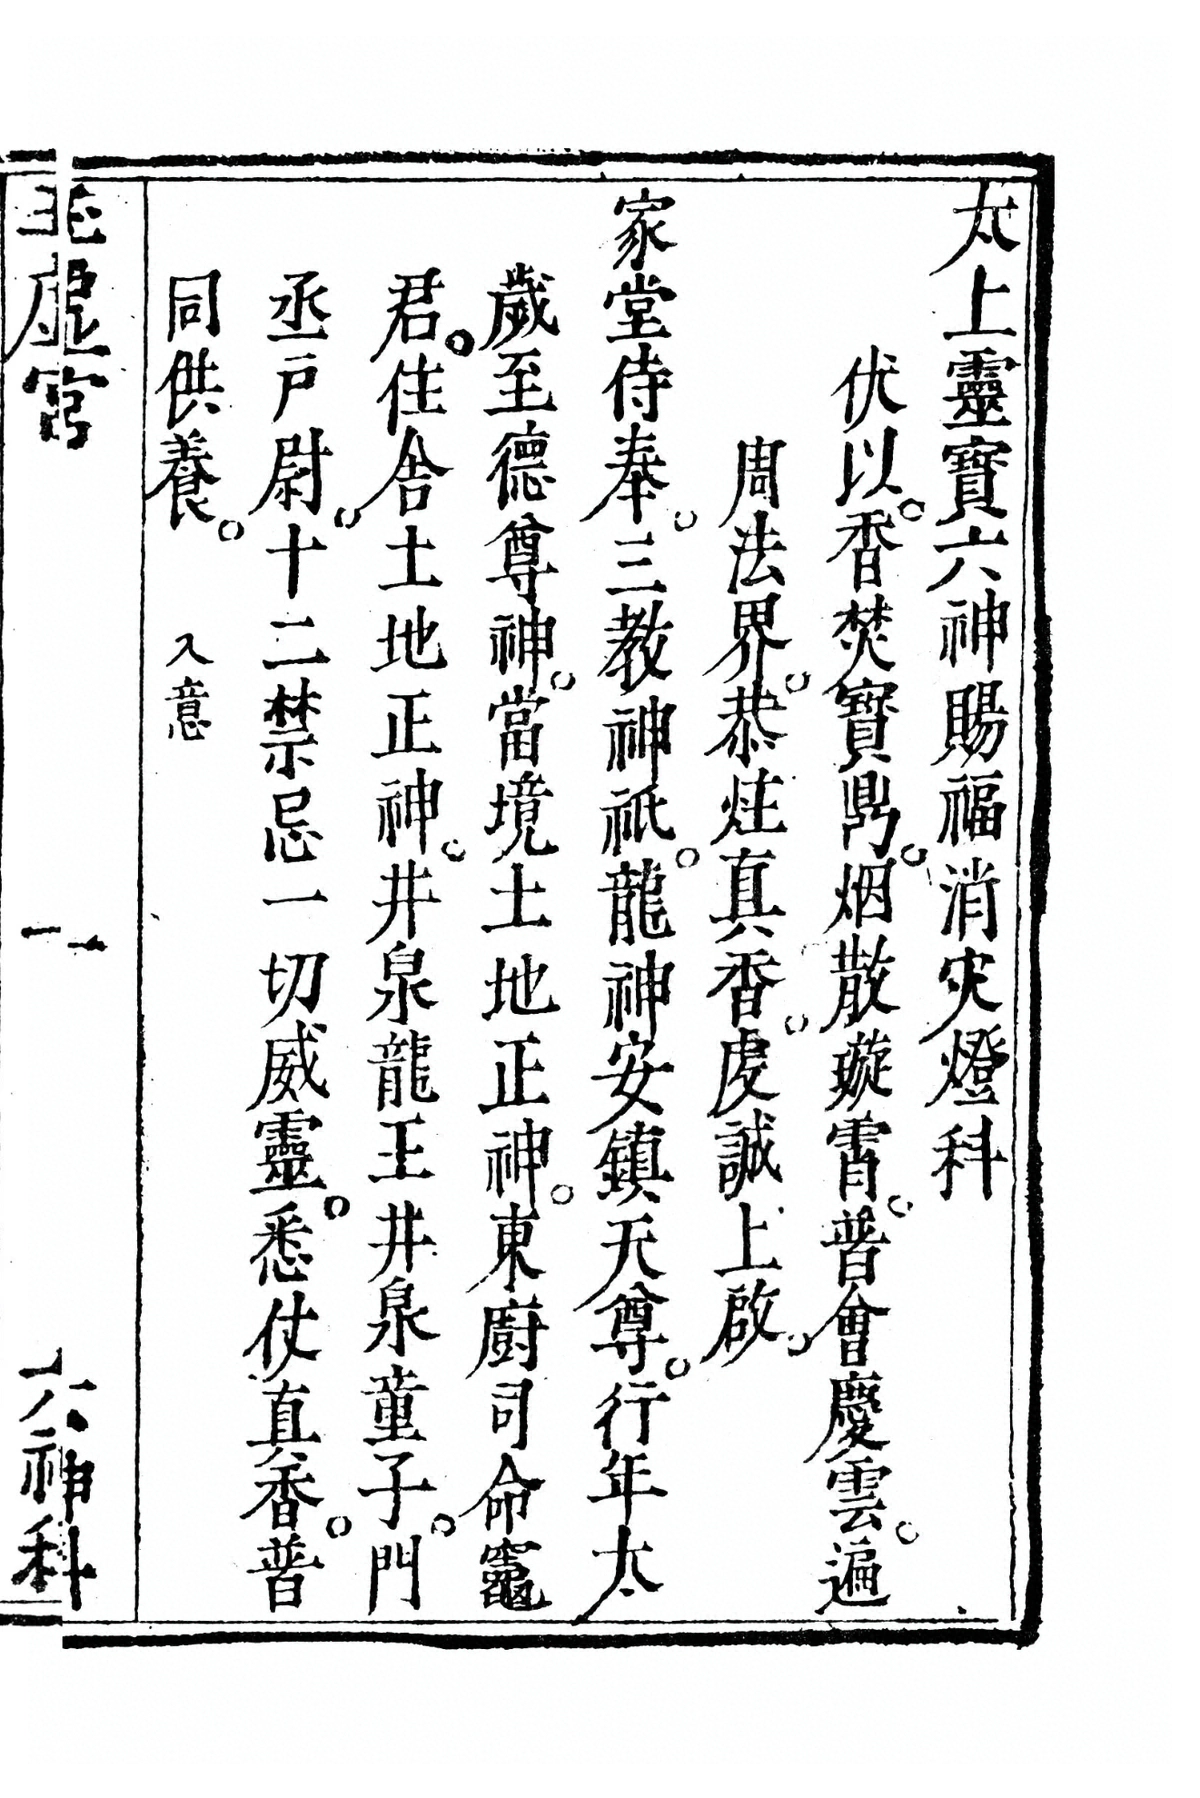 太上靈寶六神賜福消灾燈科
伏以。香焚寶鼎。烟散璇霄。普會慶雲。遍
周法界。恭炷真香。虔誠上啟。
家堂侍奉。三教神祇。龍神安鎮天尊。行年太
歲至德尊神。當境土地正神。東廚司命竈
君。住舍土地正神。井泉龍王井泉童子。門
丞戶尉。十二禁忌一切威靈。悉仗真香。普
同供養。 入意
玉虛宮 一 六神科